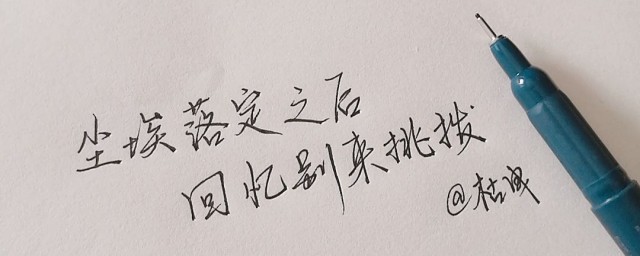 尘埃落定之后
回忆别来挑拨
@枯成